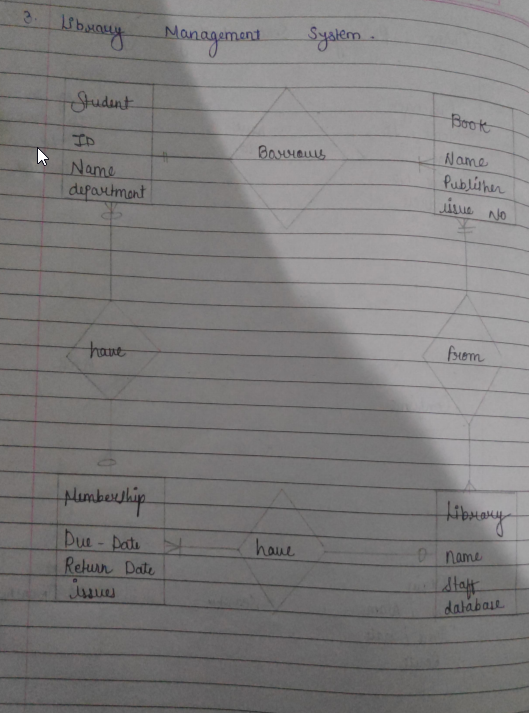 3. Library Management System.
Student
ID
Name
department
Borrows
Book
Name
Publisher
issue No
have
from
Membership
Due-Date
Return Date
issues
have
Library
name
Staff
database